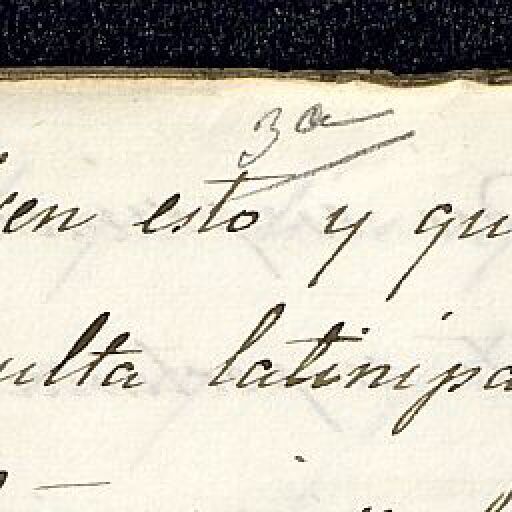 3a
en esto y qu
ulta latinipa